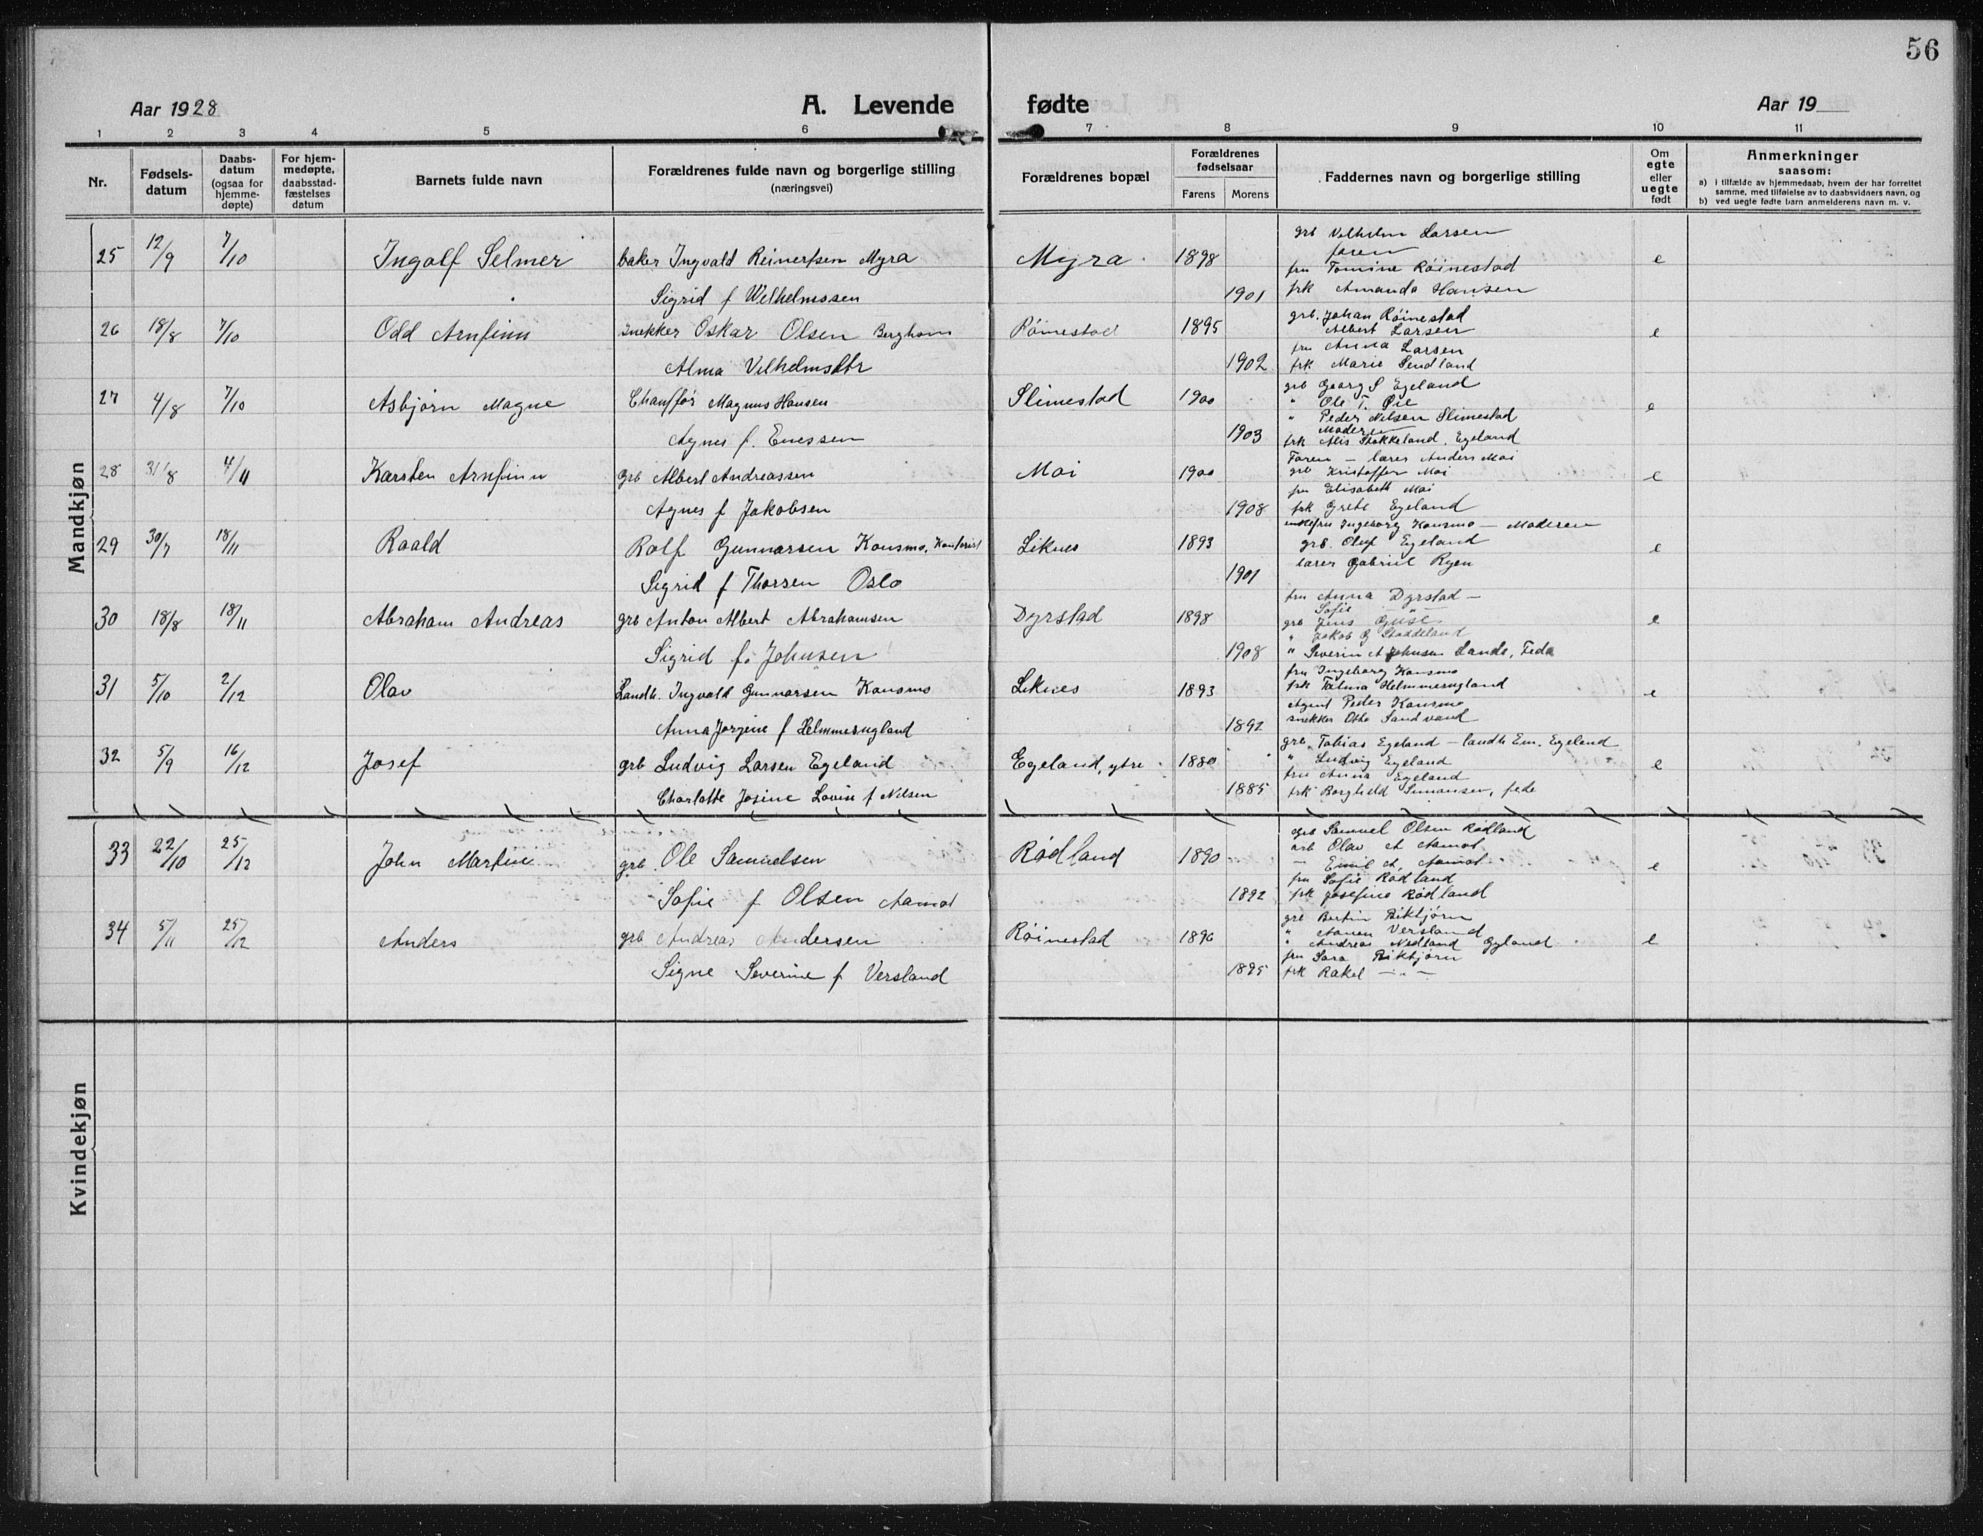 56
Aar 1928
A. Levende
fødte
Aar 19
1 2 3 4 5 6 7 8 9 10 11
Nr.
Fødsels-
datum
Daabs-
datum
(ogsaa for
hjemme-
døpte)
For hjem-
medøpte,
daabsstad-
fæstelses
datum
Barnets fulde navn
Forældrenes fulde navn og borgerlige stilling
(næringsvei)
Forældrenes bopæl
Forældrenes
fødselsaar
Farens Morens
Faddernes navn og borgerlige stilling
Om
egte
eller
uegte
født
Anmerkninger
saasom:
a) i tilfælde av hjemmedaab, hvem der har forrettet
samme, med tilføielse av to daabsvidners navn, og
b) ved uegte fødte barn anmelderens navn m. v.
Mandkjøn
25 12/9 7/10 Ingolf Selmer baker Ingvald Reinertsen Myra Myra 1898 e
Sigrid f Wilhelmssen 1901
grb Vilhelm Larsen
faren
fru Tomine Røinestad
frk Amanda Hansen
26 18/8 7/10 Odd Arnfinn snekker Oskar Olsen Berghom Røinestad 1895 e
Alma Vilhelmsdtr 1902
grb. Johan Røinestad
Albert Larsen
fru Anna Larsen
frk Marie Sendland
27 4/8 7/10 Asbjørn Magne Chauffør Magnus Hansen Slimestad 1900 e
Agnes f. Enessen 1903
grb Georg S Egeland
" Ole T. Øie
" Peder Nilsen Slimestad
Moderen
frk Alis Stokkeland, Egeland
28 31/8 4/11 Karsten Arnfinn grb Albert Andreassen Moi 1900 e
Agnes f Jakobsen 1908
Faren – lærer Anders Moi
grb Kristoffer Moi
fru Elisabeth Moi
frk Grete Egeland
29 30/7 18/11 Roald Rolf Gunnarsen Konsmo, Kontorist Liknes 1893 e
Sigrid f Thorsen Oslo 1901
enkefru Ingeborg Konsmo – Moderen
grb. Oluf Egeland
lærer Gabriel Ryen
30 18/8 18/11 Abraham Andreas grb Anton Albert Abrahamsen Dyrstad 1898 e
Sigrid f. Johnsen 1908
fru Anna Dyrstad –
Sofie – " –
grb Jens Guse
" Jakob G Staddeland
" Severin A Johnsen Lande, Feda
31 5/10 2/12 Olav Landh. Ingvald Gunnarsen Konsmo Liknes 1893 e
Anna Jorgine f Helmmesugland 1892
fru Ingeborg Konsmo
frk Talma Helmmesugland
Agent Peder Konsmo
snekker Otto Sandvand
32 5/9 16/12 Josef grb Ludvig Larsen Egeland Egeland, ytre 1880 e
Charlotte Josine Lovise f Nilsen 1885
grb. Tobias Egeland – landh Em. Egeland
" Ludvig Egeland
fru Anna Egeland
frk Borghild Simonsen, fede
33 22/10 25/12 John Martin grb. Ole Samuelsen Rødland 1890 e
Sofie f Olsen Aamot 1892
grb Samuel Olsen Rødland
arb Olav A Aamot
– Emil A. Aamot
fru Sofie Rødland
frk Josefine Rødland
34 5/11 25/12 Anders grb Andreas Andersen Røinestad 1896 e
Signe Severine f Versland 1895
grb Bertin Birktjørn
" Aanen Versland
" Andreas Nedland Gyland
fru Sara Birktjørn
frk Rakel – " –
Kvindekjøn